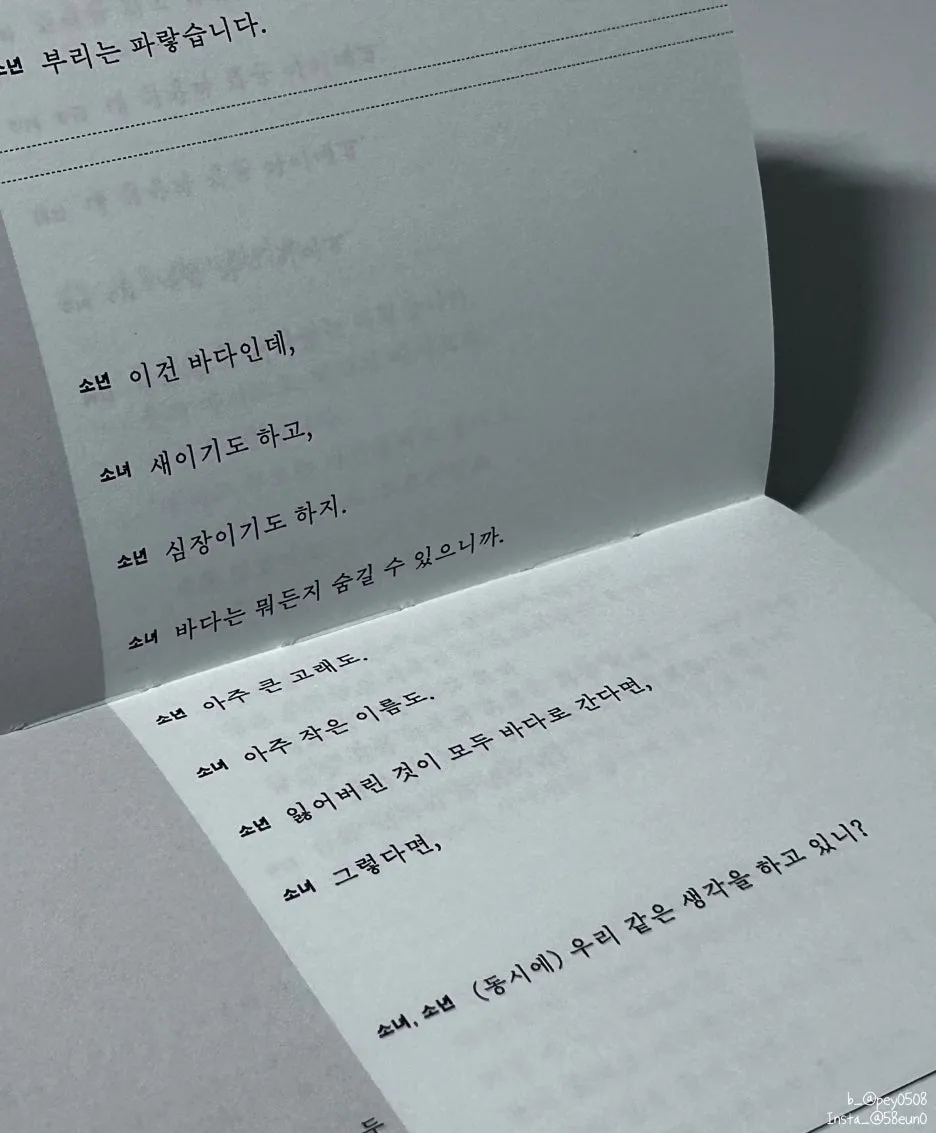 소년 부리는 파랗습니다.
소년 이건 바다인데,
소녀 새이기도 하고,
소년 심장이기도 하지.
소녀 바다는 뭐든지 숨길 수 있으니까.
소년 아주 큰 고래도.
소녀 아주 작은 이름도.
소년 잃어버린 것이 모두 바다로 간다면,
소녀 그렇다면,
소녀, 소년 (동시에) 우리 같은 생각을 하고 있니?
두
b_@pey0508
Insta_@58eun0